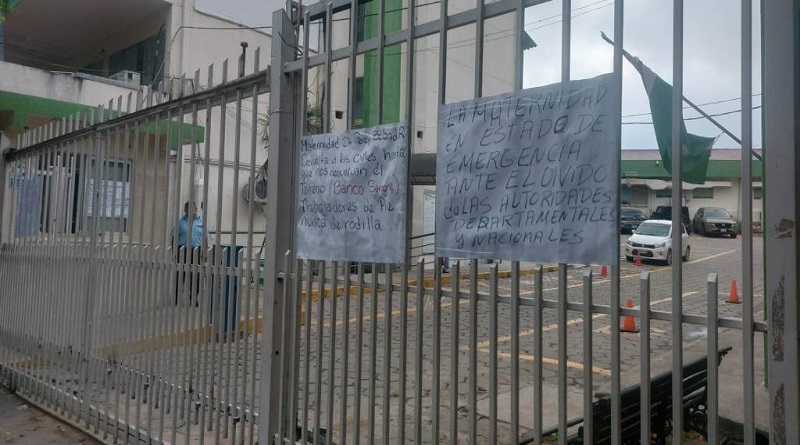 Maternidad
vuelta a las calles hasta
que nos devuelvan el
Terreno (Banco Sangre)
Trabajadores de Pie
nunca de rodilla
LA MATERNIDAD
EN ESTADO DE
EMERGENCIA
ANTE EL OLVIDO
LAS AUTORIDADES
DEPARTAMENTALES
Y NACIONALES